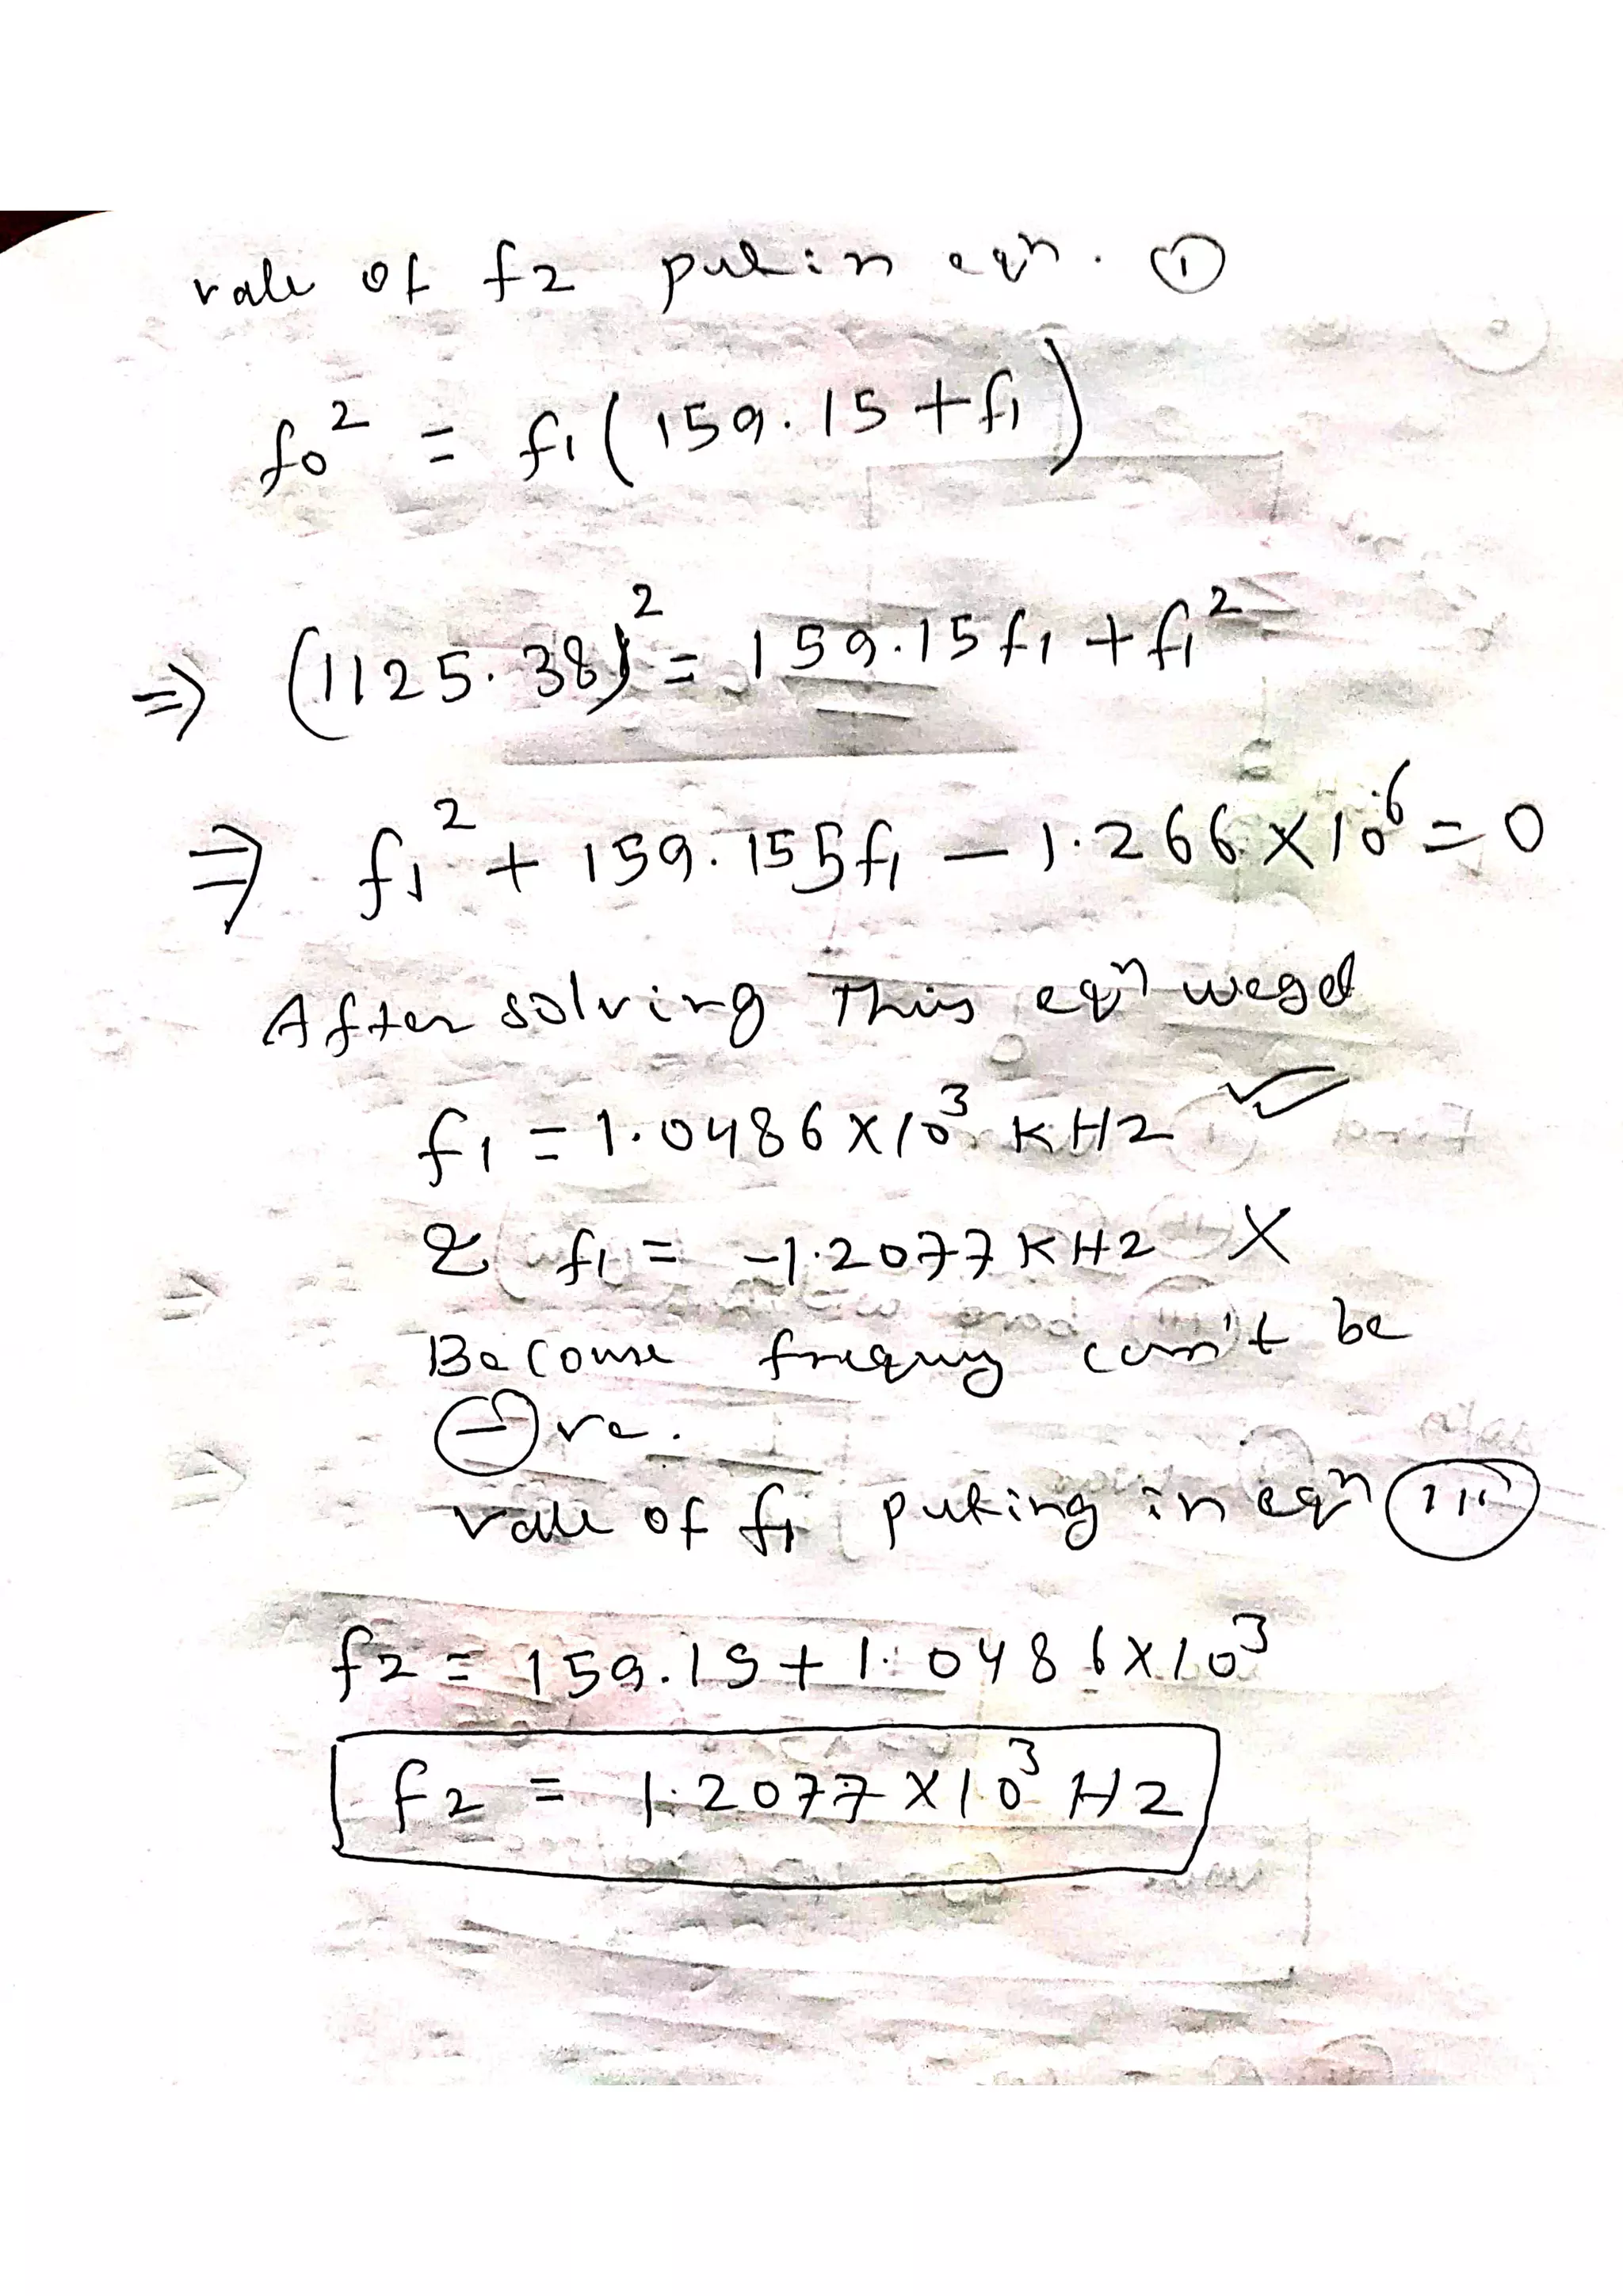 vale of f2 put in eqn. ①
f0² = f1 ( 159.15 + f1 )
⇒ (1125.38)² = 159.15 f1 + f1²
⇒ f1² + 159.155 f1 − 1.266 × 10⁶ = 0
After solving This eqn we get
f1 = 1.0486 × 10³ KHz ✓
& f1 = −1.2077 KHz X
Because frequency can't be
⊖ ve.
vale of f1 puting in eqn (iii)
f2 = 159.15 + 1.0486 × 10³
f2 = 1.2077 × 10³ Hz